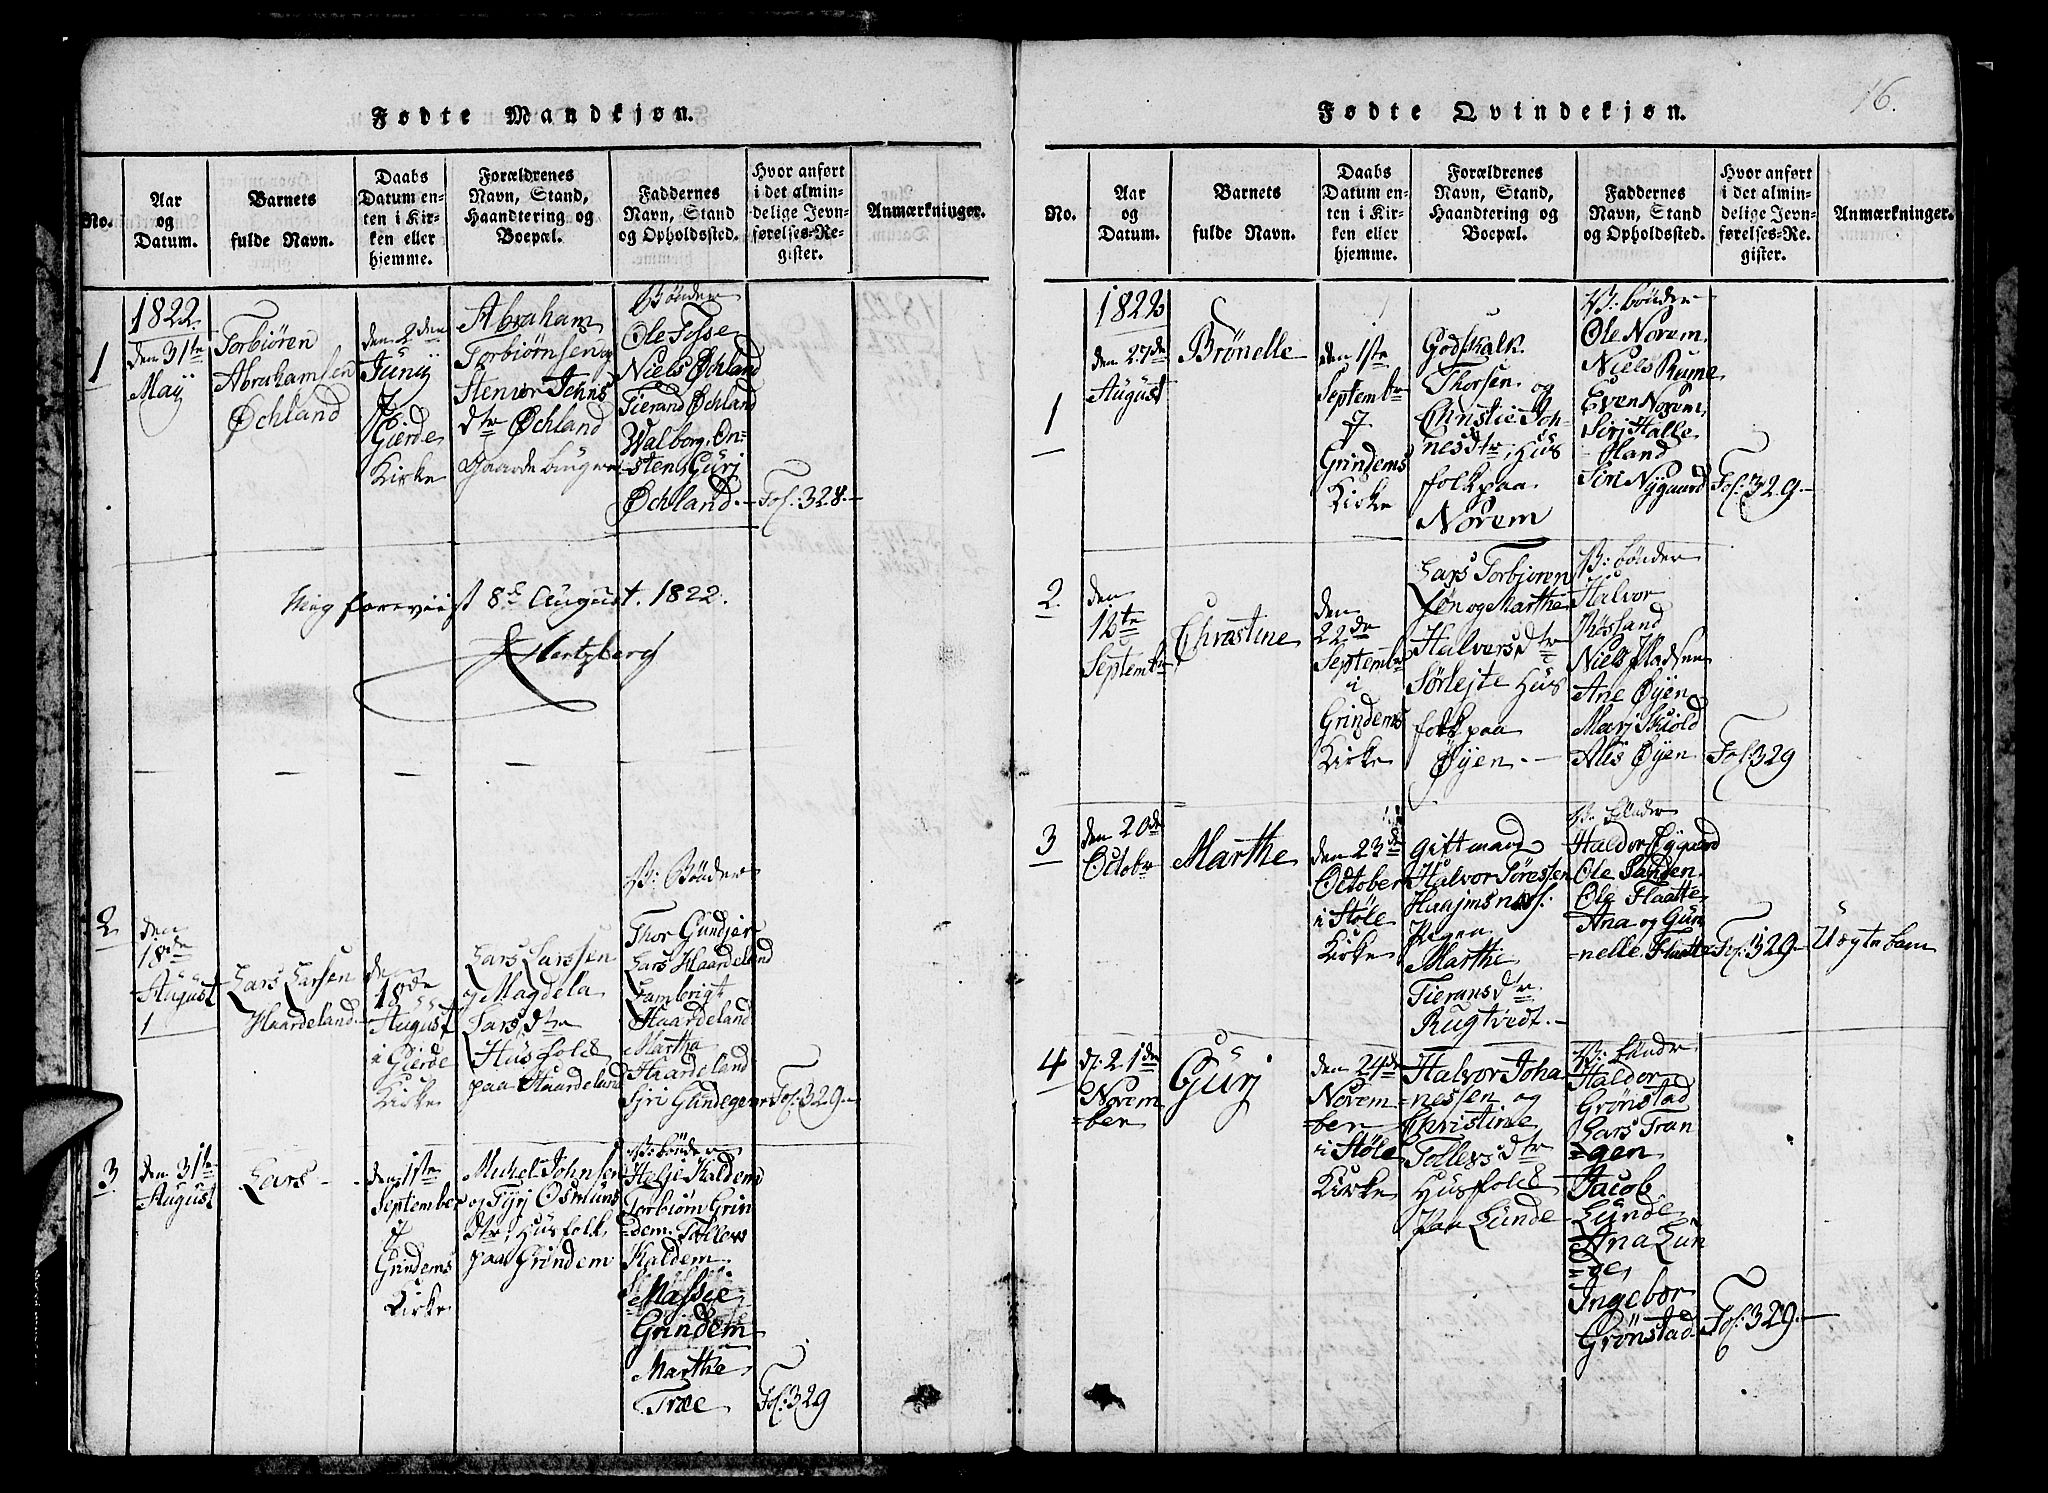 Fødte Mandkjøn.
No.
Aar
og
Datum.
Barnets
fulde Navn.
Daabs
Datum en-
ten i Kir-
ken eller
hjemme.
Forældrenes
Navn, Stand,
Haandtering og
Boepæl.
Faddernes
Navn, Stand
og Opholdssted.
Hvor anført
i det almin-
delige Jevn-
førelses-Re-
gister.
Anmærkninger.
1
1822
den 31te
Maÿ
Torbiören
Abrahamsen
Øchland
den 2den
Junÿ
Gierde
Kirke
Abraham
Torbiörnsen og
Johns
dtr Øchland
Bönder
Ole Tysse
Niels Øchland
Tierand Øchland
Walborg On=
=sten, Gurj
Øchland.-
Fol: 328.-
Mig foreviist 8de August. 1822.
Hertzberg
2
den
18de
August
1
Lars Larsen
Haardeland.
den
18de
August
i Gierde
Kirke
Lars Larssen
og Magdela
Lars dtr
Husfolk
paa Haardeland
B: Bönder
Thor Gundjer
Lars Haardeland
Lambrigt
Haardeland
Martha
Haardeland
Sjri
Fol: 329.-
3
den 31te
August
Lars -
den 1ste
September
Grindems
Kirke
Johnsen
og Osmuns
dtr, Husfolk
paa Grindem
B: bönder
Helje Kaldem
Torbiörn Grin
=dem. Tollers
Kaldem
Massie
Grindem
Marthe
Træe
Fol: 329
16.
Fødte Qvindekjøn.
No.
Aar
og
Datum.
Barnets
fulde Navn.
Daabs
Datum en-
ten i Kir-
ken eller
hjemme.
Forældrenes
Navn, Stand,
Haandtering og
Boepæl.
Faddernes
Navn, Stand
og Opholdssted.
Hvor anført
i det almin-
delige Jevn-
førelses-Re-
gister.
Anmærkninger.
1
1822
den 27de
August
Brönelle
den 1ste
Septembr
Grindems
Kirke
Godskalk
Thorsen og
Christie Joh-
nesdtr, Hus
folk paa
Norem
B: bönder
Ole Norem
Niels Rume
Even Norem
Sirj Halle
=bland
Siri Nygaard
Fol: 329.-
2
den
Septembr
Christine
den
22de
Septembr
i
Grindems
Kirke
Lars Torbjoren
og Marthe
Halvors dtr
Sörlejte Hus
folk paa
Øÿen.-
B: bönder
Halvor
Niels Madsen
Ane Øÿen
Marj Skiold
Alis Øÿen
Fol: 329
3
den 20de
Octobr
Marthe
den 23de
October
i Stöle
Kirke
Giftmand
Halvor Söressen
Pigen
Marthe
Tieransdtr
Rugtvedt.-
B: bönder
Haldor
Ole Sanden
Ole Flaatte-
Ana og Gun
=nelle Flaatte
Fol: 329-
Uægte barn
4
d: 21de
Novem
=ber
Gurj
den 24de
Novem
=ber
i Stöle
Kirke
Halvor Joha
=nessen og
Christine
Tollers dtr
Husfolk
paa Lunde
B: bönder
Haldor
Grönstad
Lars Tran
=gen
Jacob
Lunde
Ana Lun
=de,
Ingebor
Grönstad
Fol: 329.-